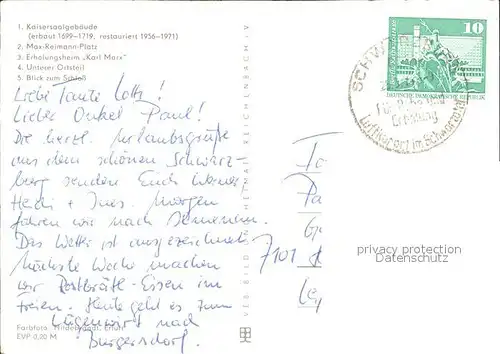 1. Kaisersaalgebäude
(erbaut 1699–1719, restauriert 1956–1971)
2. Max-Reimann-Platz
3. Erholungsheim „Karl Marx"
4. Unterer Ortsteil
5. Blick zum Schloß
Liebe Tante Lotte!
Lieber Onkel Paul!
Die herzl. Urlaubsgrüße
aus dem schönen Schwarz-
burg senden Euch Werner,
Heidi + Ines. Morgen
fahren wir nach
Das Wetter ist ausgezeichnet.
Nächste Woche machen
wir Rostbrätl-Essen im
Freien. Heute geht es zum
nach
Burgersdorf.
Farbfoto: Hildebrandt, Erfurt
EVP 0,20 M
VEB BILD UND HEIMAT REICHENBACH
10
DEUTSCHE DEMOKRATISCHE REPUBLIK
SCHWARZBURG
Erholung
Luftkurort im Schwarzatal
7101
privacy protection
Datenschutz